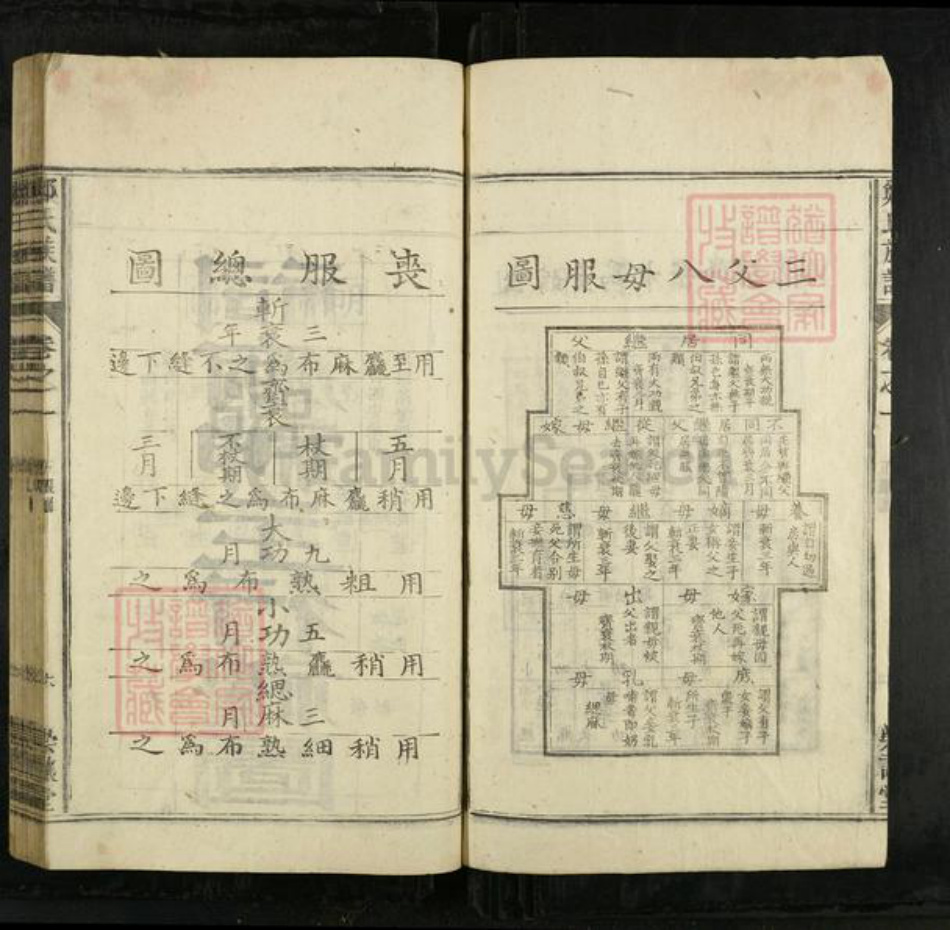 三父八母服圖
同居繼父
兩無大功親
謂繼父無子
孫己身亦無
伯叔兄弟之
類
兩有大功親
齊衰三月
謂繼父有子
孫自己亦有
伯叔兄弟之
類
不同居繼父 從繼母嫁
齊衰三月
齊衰杖期
養母 嫡母 繼母 慈母
謂自幼過
房與人
斬衰三年
謂妾生子
女稱父之
正妻
斬衰三年
謂父娶之
後妻
斬衰三年
謂所生母
死父令別
妾撫育者
斬衰三年
嫁母 出母
謂親母因
父死再嫁
他人
齊衰杖期
謂親母被
父出者
齊衰杖期
庶母 乳母
謂父有子
女妾嫡子
眾子
齊衰杖期
所生子
斬衰三年
謂父妾乳
哺者即奶
母
緦麻
喪服總圖
斬衰三年
用至麤麻布為之不縫下邊
齊衰
五月
杖期
不杖期
三月
用稍麤麻布為之縫下邊
大功九月
用粗熟布為之
小功五月
用稍麤熟布為之
緦麻三月
用稍細熟布為之
鄭氏族譜
卷之一
FamilySearch